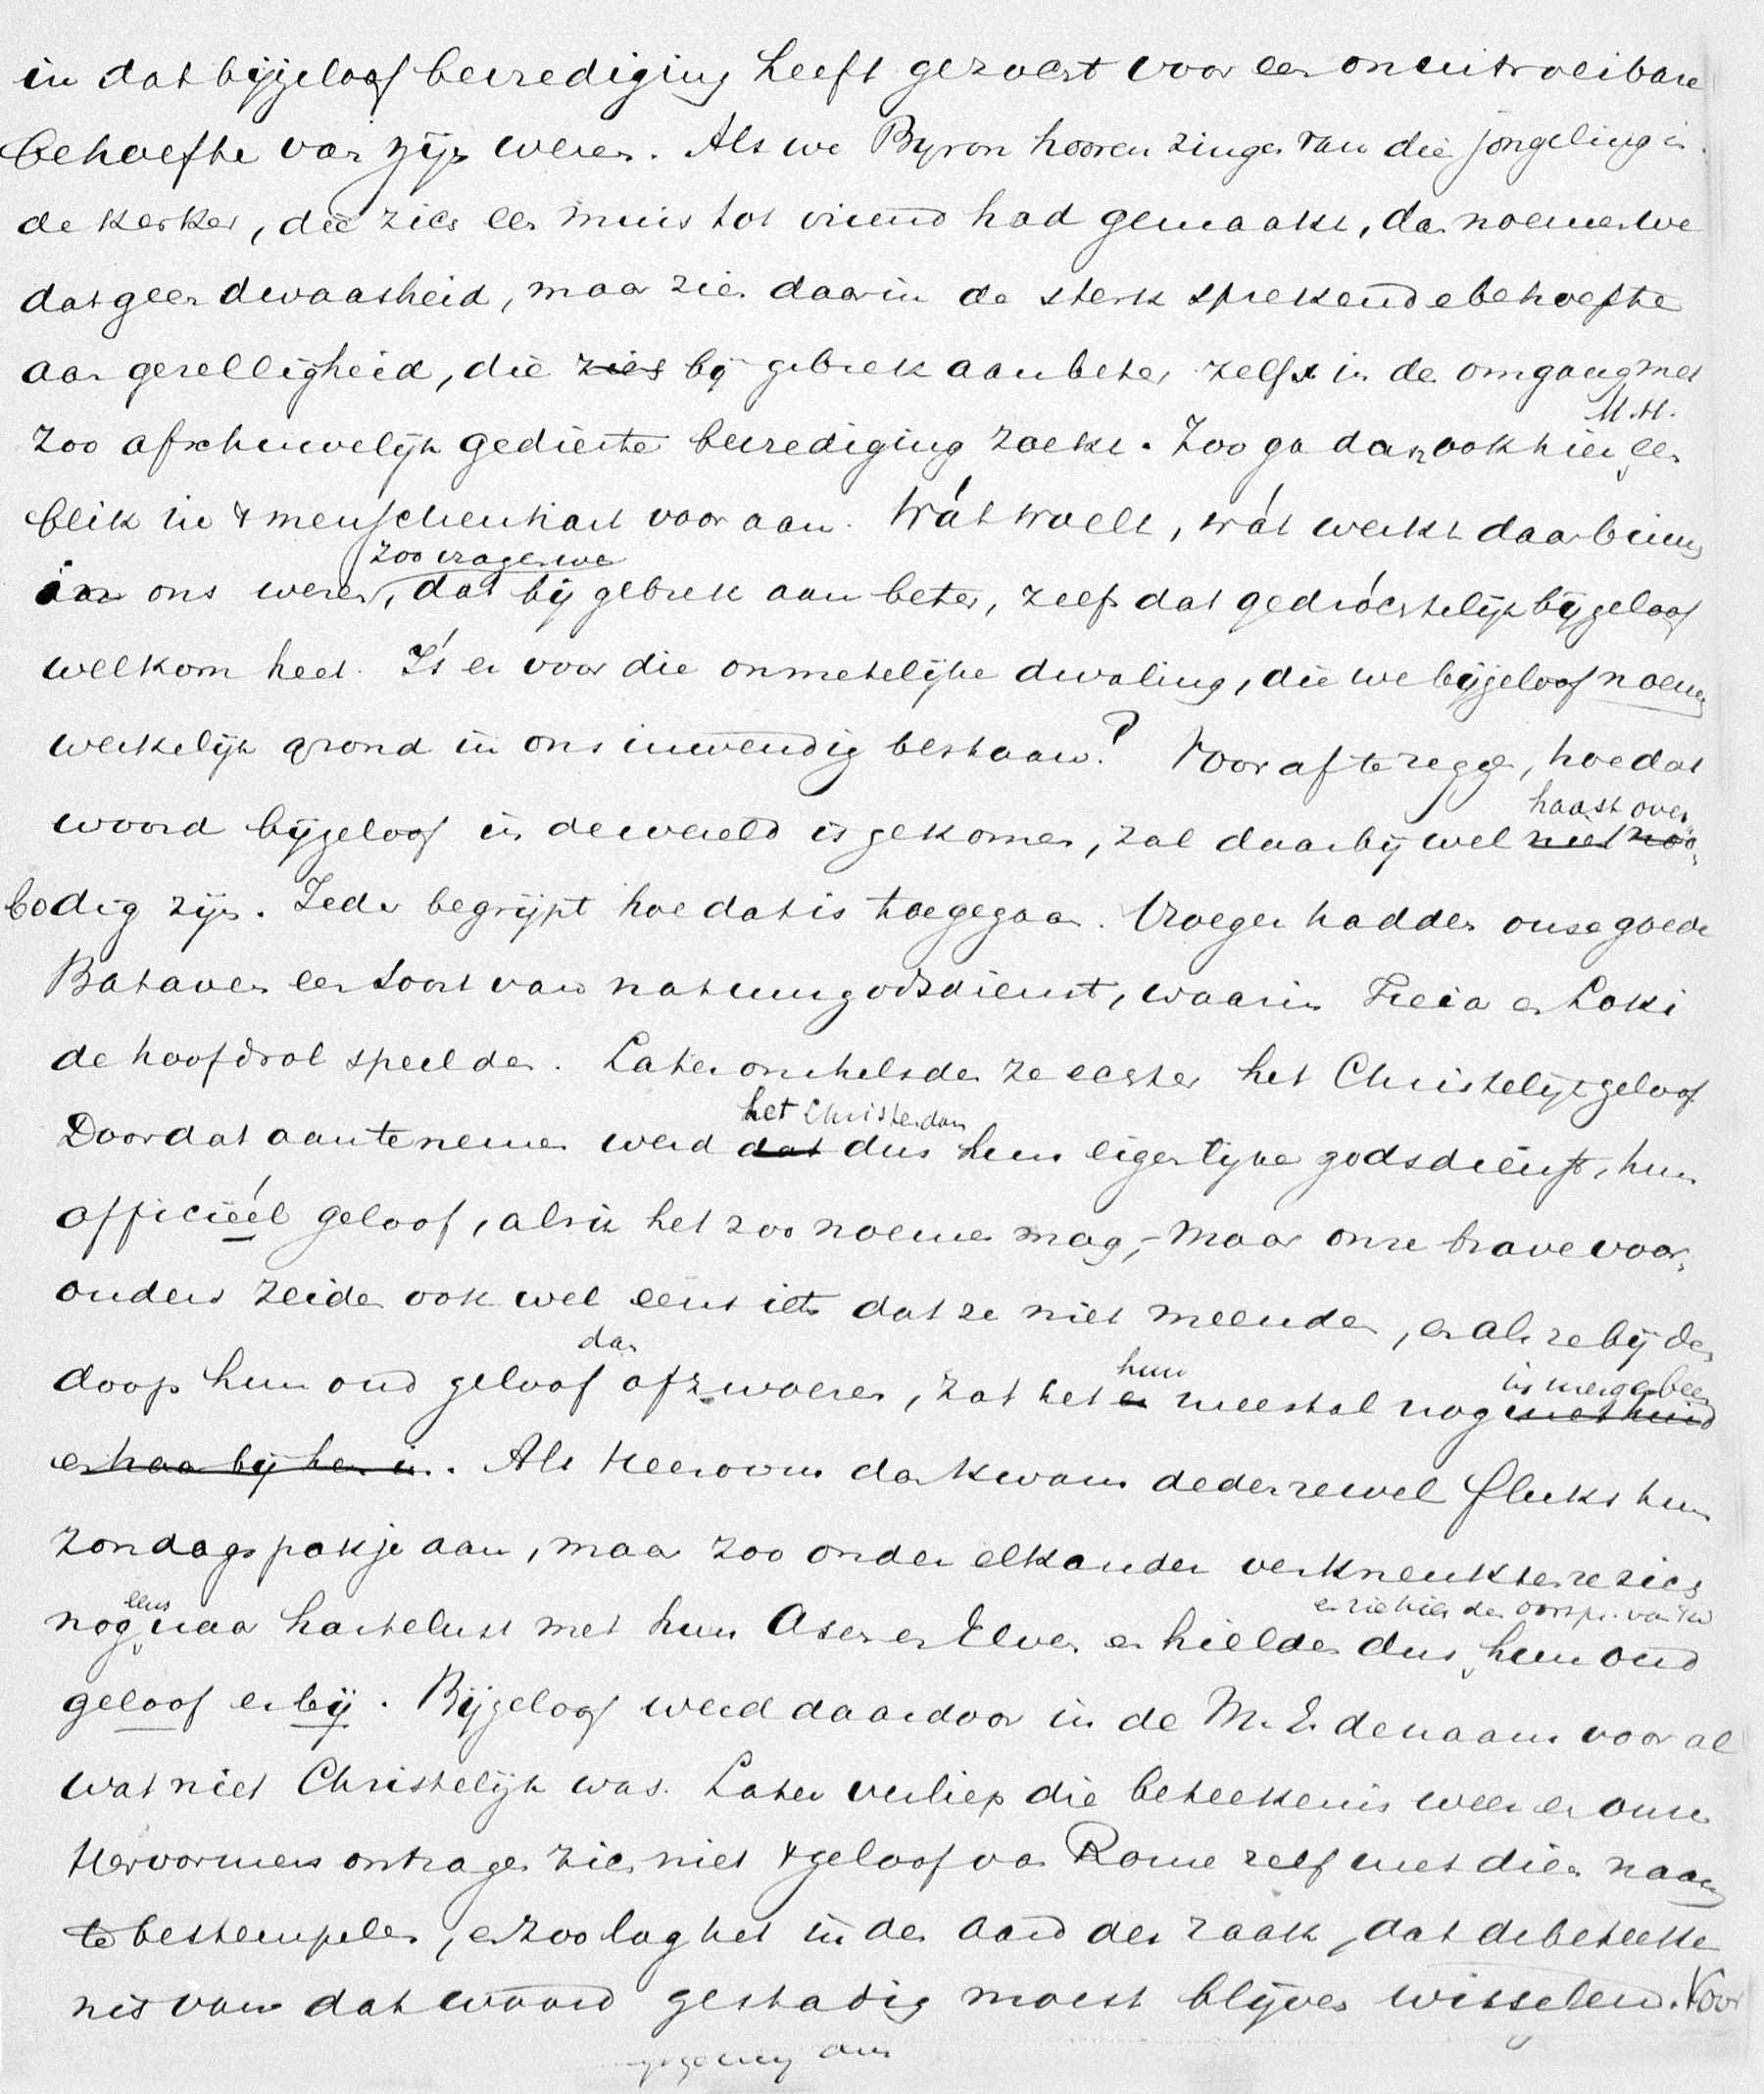 in dat bijgeloof bevrediging heeft gezocht voor een onuitroeibare
behoefte van zijn wezen. Als we Byron hooren zingen van die jongeling in
de kerker, die zich een muis tot vriend had gemaakt, dan noemen we
dat geen dwaasheid, maar zien daarin de sterk sprekende behoefte
aan gezelligheid, die zich bij gebrek aan beter zelfs in de omgang met
M.H.
zoo afschuwelijk gedierte bevrediging zoekt. Zoo ga dan ook hier een
blik in 't menschenhart vooraan. Wát woelt, wát werkt daarbinnen
zoo vragen we
in ons wezen, dat bij gebrek aan beter, zelfs dat gedróchtelijk bijgeloof
welkom heet. Ís er voor die onmetelijke dwaling, die we bijgeloof noemen
werkelijk grond in ons inwendig bestaan? Vooraf te zeggen, hoe dat
haast over
woord bijgeloof in de wereld is gekomen, zal daarbij wel niet noo
bodig zijn. Ieder begrijpt hoe dat is toegegaan. Vroeger hadden onse goede
Bataven een soort van natuurgodsdienst, waarin Freia en Loki
de hoofdrol speelden. Later omhelsden ze echter het Christelijk geloof
het Christendom
Door dat aan te nemen werd dat dus hun eigenlijke godsdienst, hun
officiëél geloof, als ik het zoo noemen mag,- maar onze brave voor
ouders zeiden ook wel eens iets dat ze niet meenden, en als ze bij den
dan
doop hun oud geloof afzwoeren, zat het er meestal nog met huid
hun in merg en been
en haar bij hen in. Als Heeroom dan kwam deden ze wel fluks hun
zondagspakje aan, maar zoo onder elkander verkneukten ze zich
eens en zie hier den oorspr. van 't w
nog naar hartelust met hun Asen en Elven en hielden dus hun oud
geloof er bij. Bijgeloof werd daardoor in de M.E. de naam voor al
wat niet Christelijk was. Later verliep die beteekenis weer en onze
Hervormers ontzagen zich niet 't geloof van Rome zelf met dien naam
te bestempelen, en zoo lag het in den aard der zaak, dat de beteeke
nis van dat woord gestadig moest blijven wisselen. Voor